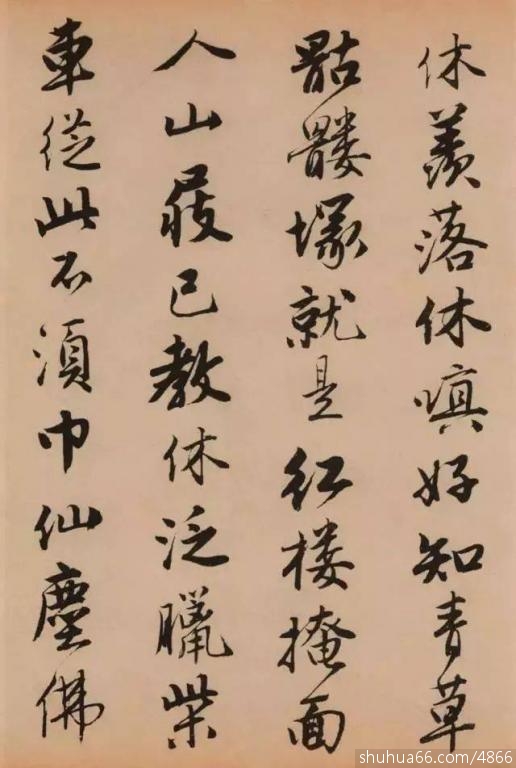 休羨落休嗔好知青草
骷髏塚就是紅樓掩面
人山屐已教休泛臘柴
車從此不須巾仙塵佛
shuhua66.com/4866